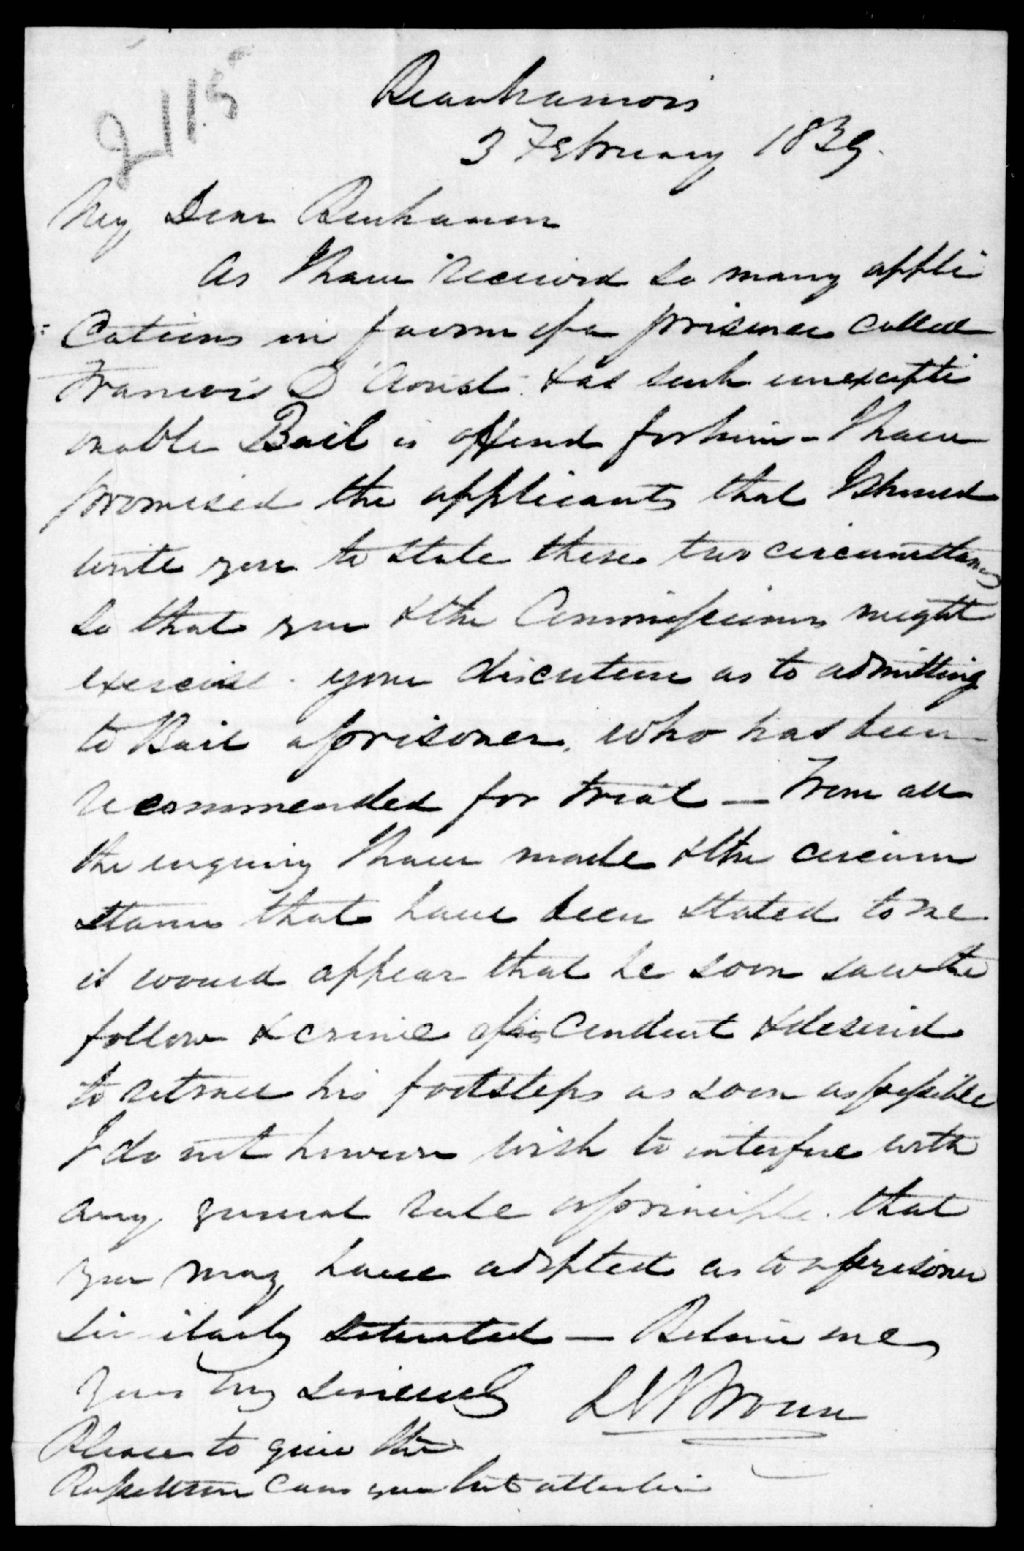 2115
Beauharnois
3 February 1839.
My Dear Buchanan
As I have received so many appli
cations in favour of a prisoner called
Francois D'Aoust & as such unexcepti
onable Bail is offered for him - I have
promised the applicants that I should
write you to state these two circumstances
so that you & the Commissioners might
exercise your discretion as to admitting
to Bail a prisoner who has been
recommended for trial — From all
the enquiry I have made & the circum
stances that have been stated to me
it would appear that he soon saw the
follow & crime of his Conduct & desired
to retrace his footsteps as soon as possible
I do not however wish to interfere with
any general rule or principle that
you may have adopted as to a prisoner
similarly situated — Believe me
Yours very sincerely
L G Brown
Please to give the
Case your best attention